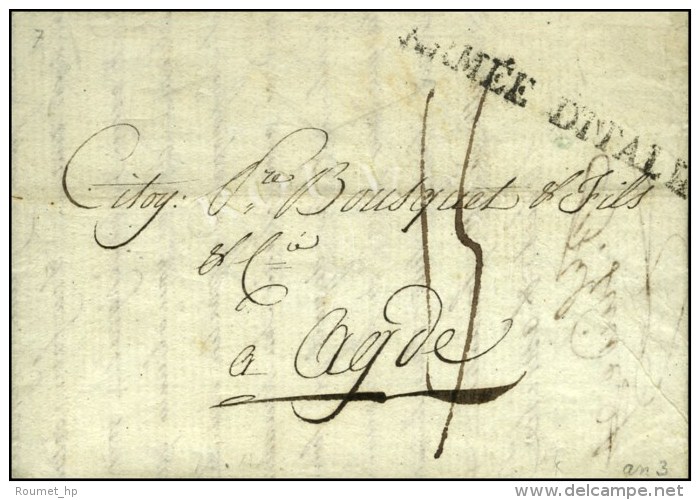 7
ARMÉE D'ITALIE
Citoy. Pre Bousquet & Fils
& Cie
a
Agde
15
an 3
Roumet_hp
www.delcampe.net